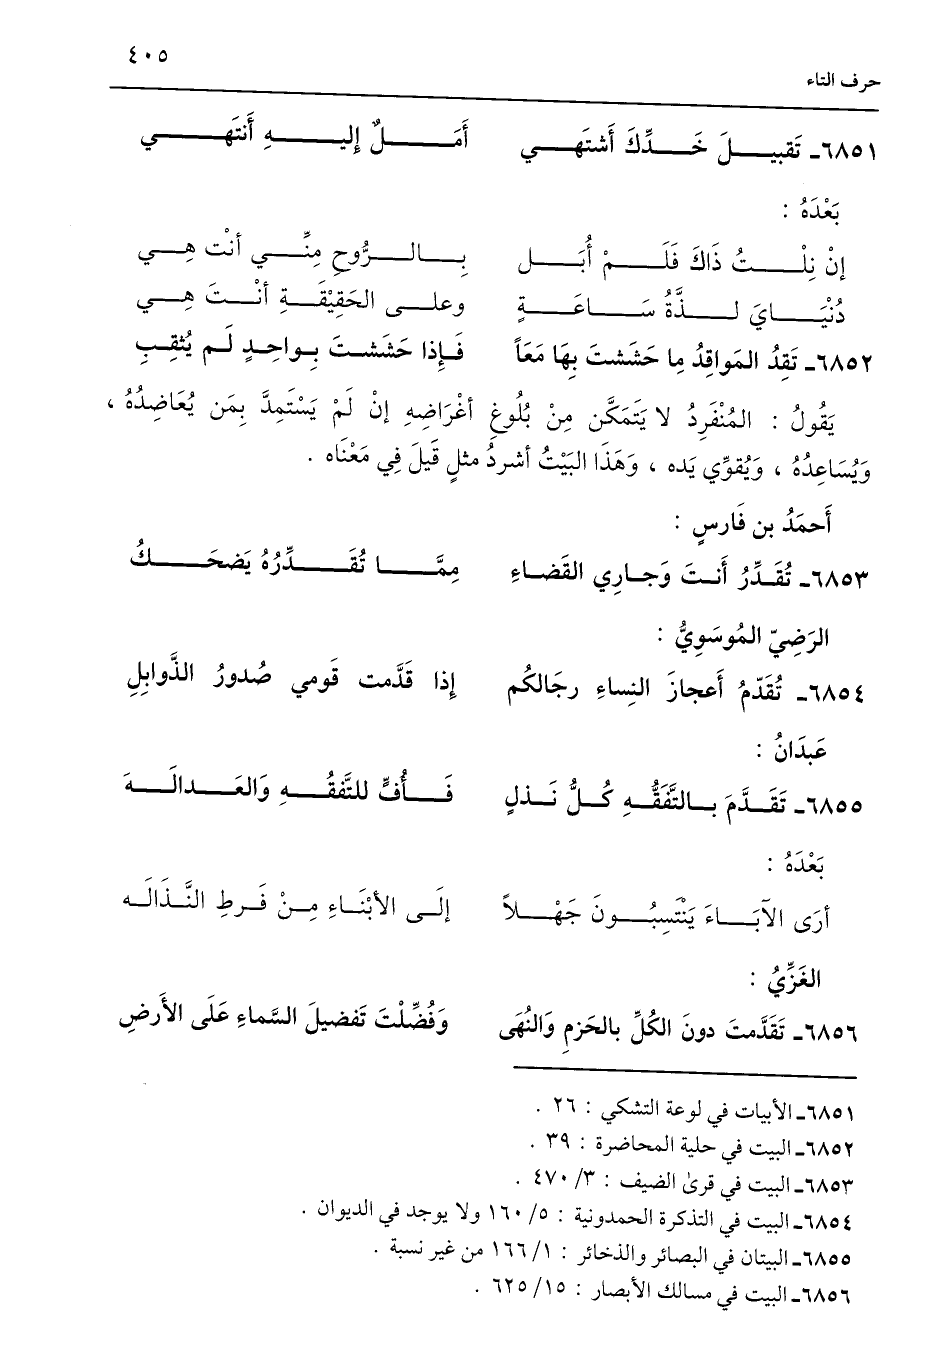 ٤٠٥
حرف التاء
٦٨٥١ـ تَقبيلَ خَدِّكَ أَشتَهي أَمَلٌ إِليهِ أَنتَهي
بَعْدَهُ :
إنْ نِلْتُ ذَاكَ فَلَمْ أُبَل بِالرُّوحِ مِنِّي أنْت هِي
دُنْيَايَ لذَّةُ سَاعَةٍ وعلى الحَقِيْقَةِ أنْتَ هِي
٦٨٥٢ـ تَقِدُ المَواقِدُ ما حَشَشتَ بِهَا مَعَاً فَإِذا حَشَشتَ بِواحِدٍ لَم يُثقِبِ
يَقُولُ : المُنْفَرِدُ لا يَتَمَكَّن مِنْ بُلُوغِ أغْرَاضِهِ إنْ لَمْ يَسْتَمِدَّ بِمَن يُعَاضِدُهُ ،
وَيُسَاعِدُهُ ، وَيُقوِّي يَده ، وَهَذَا البَيْتُ أشردُ مثلٍ قَيلَ فِي مَعْنَاه .
أَحمَدُ بن فَارسٍ :
٦٨٥٣ـ تُقَدِّرُ أَنتَ وَجارِي القَضاءِ مِمَّا تُقَدِّرُهُ يَضحَكُ
الرَضِيّ المُوسَوِيُّ :
٦٨٥٤ـ تُقَدّمُ أَعجازَ النِساءِ رِجَالكُم إِذا قَدَّمت قَومي صُدورُ الذَّوابلِ
عَبدَانُ :
٦٨٥٥ـ تَقَدَّمَ بِالتَّفَقُّهِ كُلُّ نَذلٍ فَأُفٍّ للتَّفقُهِ وَالعَدالَهَ
بَعْدَهُ :
أرَى الآبَاءَ يَنْتَسِبُونَ جَهْلاً إلَى الأبْنَاءِ مِنْ فَرطِ النَّذَالَه
الغَزِّيُ :
٦٨٥٦ـ تَقَدَّمتَ دونَ الكُلِّ بالحَزمِ وَالنُهَى وَفُضِّلْتَ تَفضيلَ السَّماءِ عَلَى الأَرضِ
٦٨٥١ـ الأبيات في لوعة التشكي : ٢٦ .
٦٨٥٢ـ البيت في حلية المحاضرة : ٣٩ .
٦٨٥٣ـ البيت في قرىٰ الضيف : ٣/ ٤٧٠ .
٦٨٥٤ـ البيت في التذكرة الحمدونية : ٥/ ١٦٠ ولا يوجد في الديوان .
٦٨٥٥ـ البيتان في البصائر والذخائر : ١/ ١٦٦ من غير نسبة .
٦٨٥٦ـ البيت في مسالك الأبصار : ١٥/ ٦٢٥ .